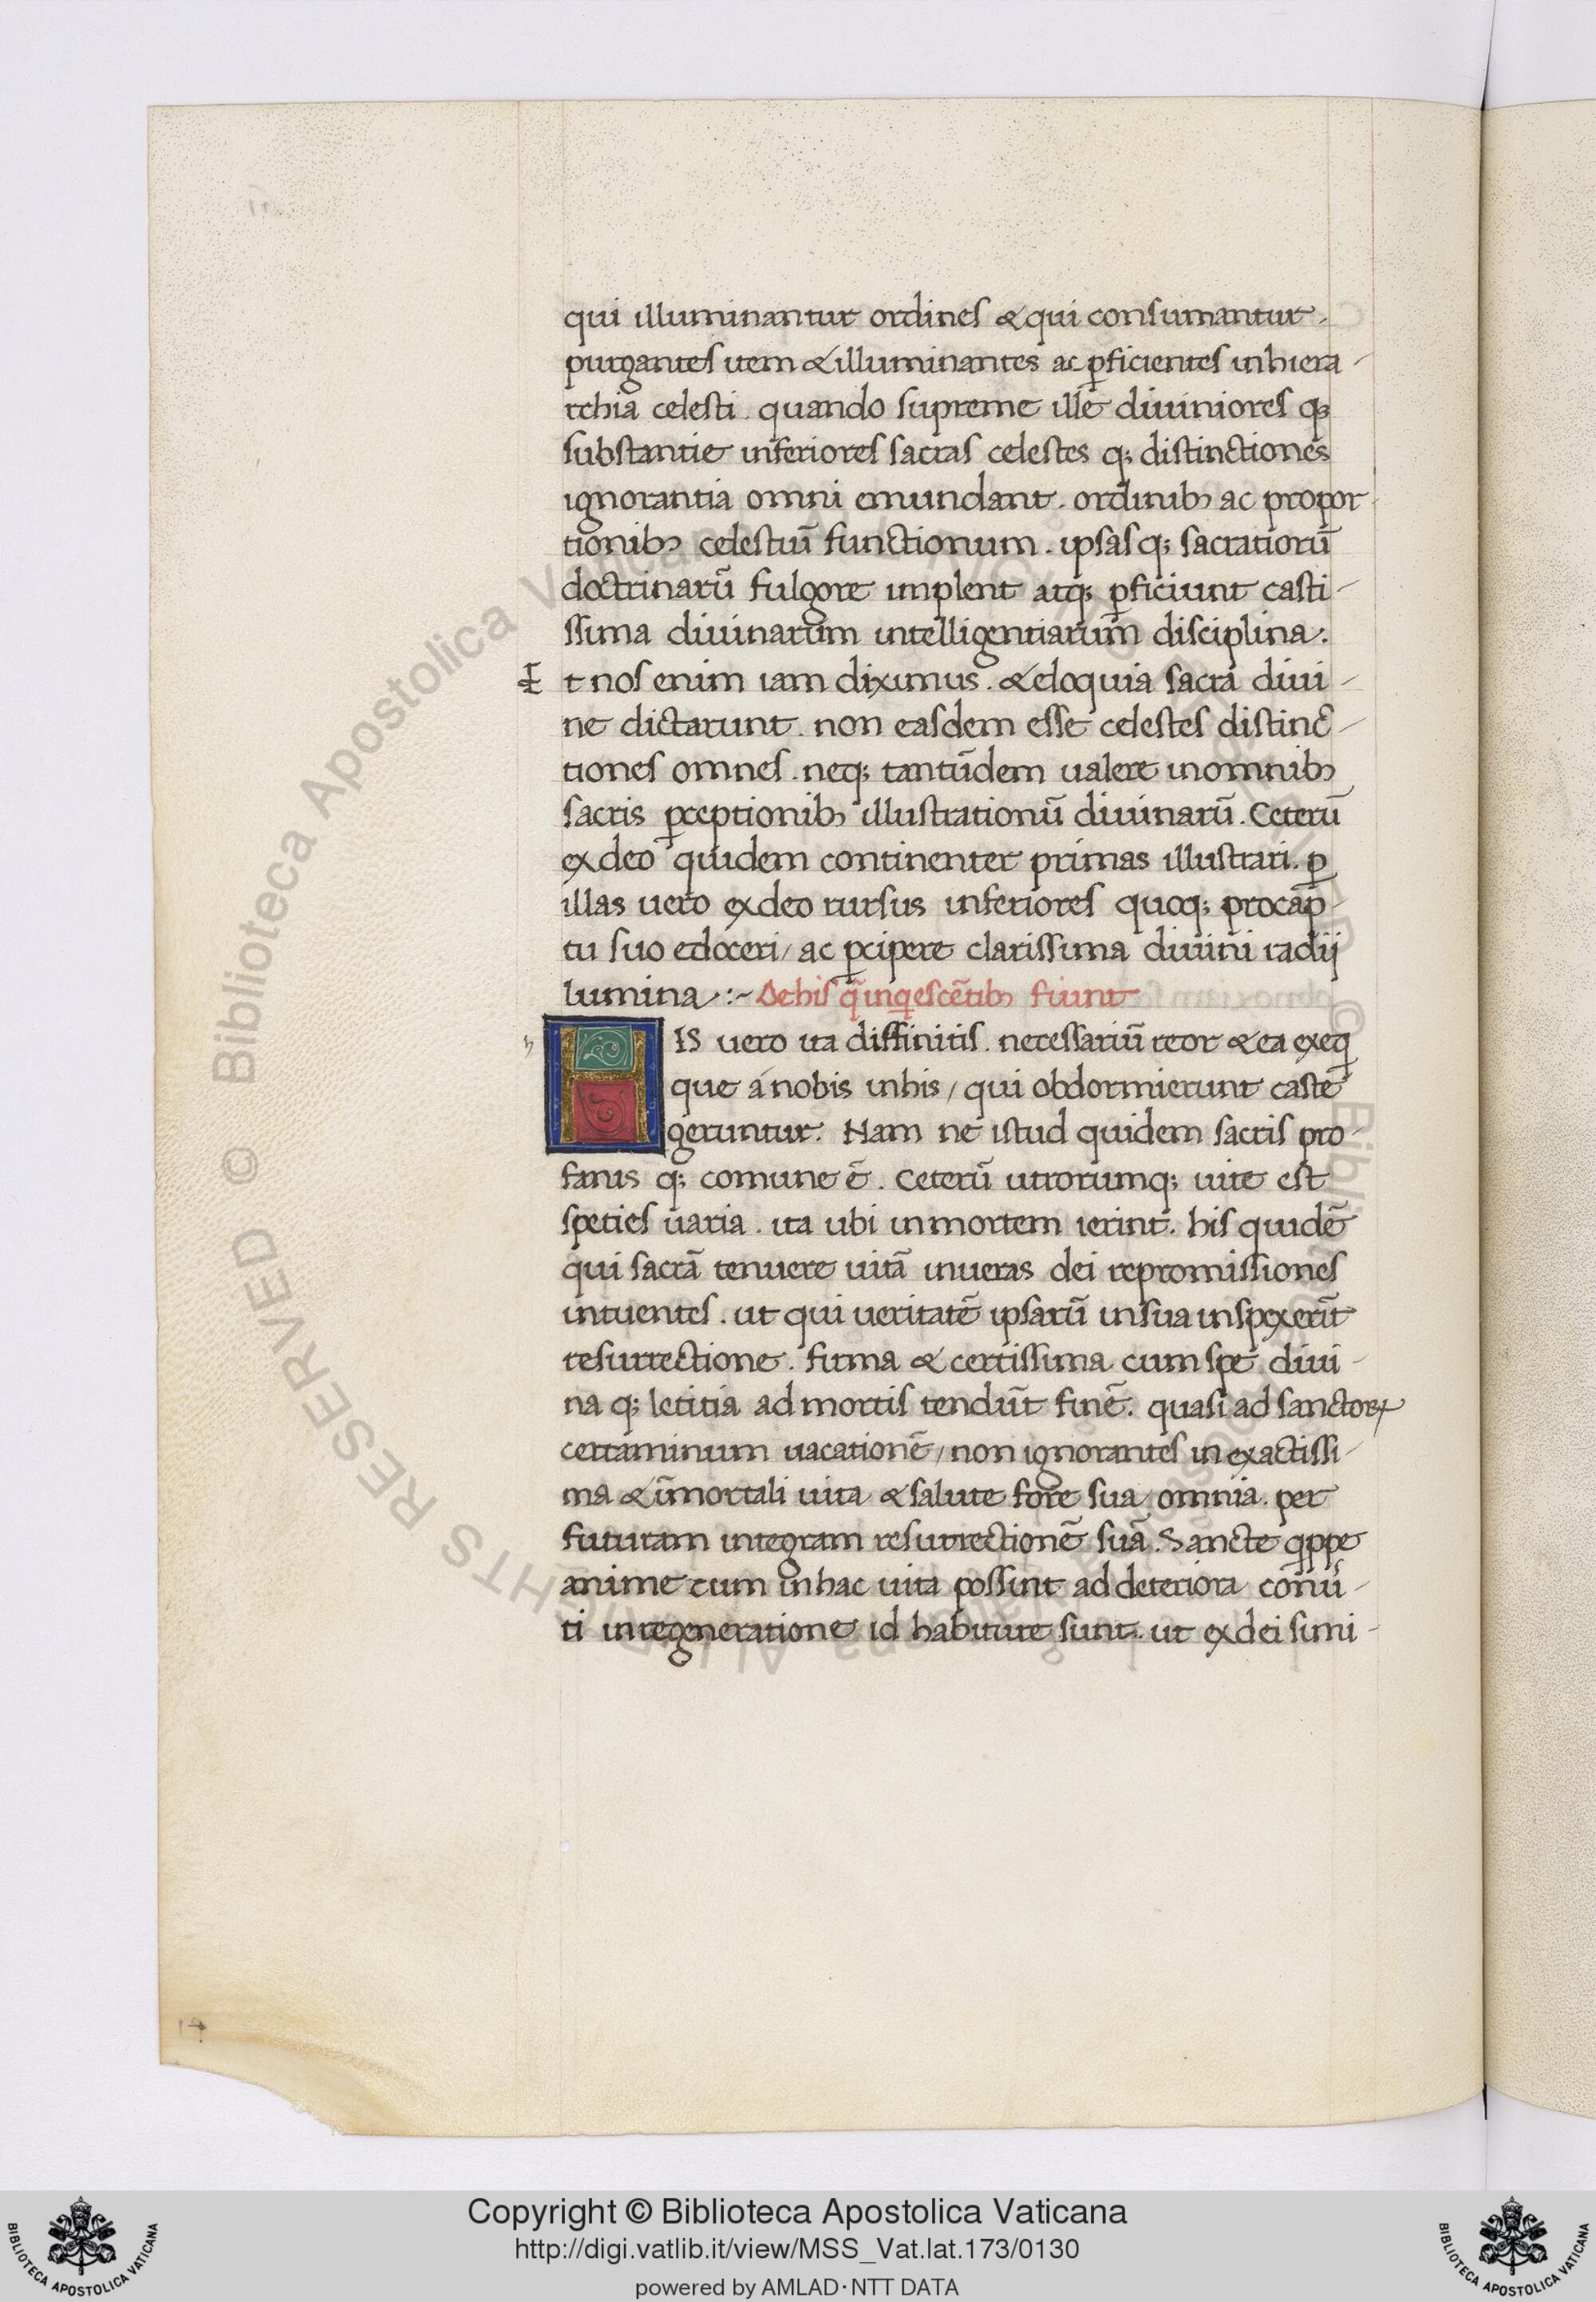 qui illuminantur ordines & qui consumantur,
purgantes item & illuminantes ac p̱ficientes in hiera-
rchia celesti. quando supreme ille diuiniores q;
substantie inferiores sacras celestes q; distinctiones
ignorantia omni emundant. ordinibꝫ ac propor-
tionibꝫ celestiū functionum. ipsasq; sacratiorū
doctrinarū fulgore implent atq; ꝑficiunt casti-
ssima diuinarum intelligentiarum disciplina.
Et nos enim iam diximus. & eloquia sacra diui-
ne dictarunt. non easdem esse celestes distinc-
tiones omnes. neq; tantūdem ualere in omnibꝫ
sacris ꝑceptionibꝫ illustrationū diuinarū. Ceterū
ex deo quidem continenter primas illustrari. ꝑ
illas uero ex deo rursus inferiores quoq; pro cap-
tu suo edoceri, ac ꝑcipere clarissima diuini radii
lumina :~ De his q̄ in qescētibꝫ fiunt
HIS uero ita diffinitis. necessariū reor & ea exeq
que á nobis in his, qui obdormierunt caste
geruntur. Nam ne istud quidem sacris pro-
fanis q; comune ē. Ceterū utrorumq; uite est
speties uaria. ita ubi in mortem ierint. his quidē
qui sacrā tenuere uitā in ueras dei repromissiones
intuentes. ut qui ueritatē ipsarū in sua inspexerūt
resurrectione. firma & certissima cum spe diui-
na q; letitia ad mortis tendūt finē. quasi ad sanctoꝝ
certaminum uacationē, non ignorantes in exactissi-
ma & īmortali uita & salute fore sua omnia. per
futuram integram resurrectionē suā. Sancte qppe
anime cum in hac uita possint ad deteriora cōnū-
ti in regeneratione id habiture sunt. ut ex dei simi-
14
Copyright © Biblioteca Apostolica Vaticana
http://digi.vatlib.it/view/MSS_Vat.lat.173/0130
powered by AMLAD·NTT DATA
BIBLIOTECA APOSTOLICA VATICANA
BIBLIOTECA APOSTOLICA VATICANA